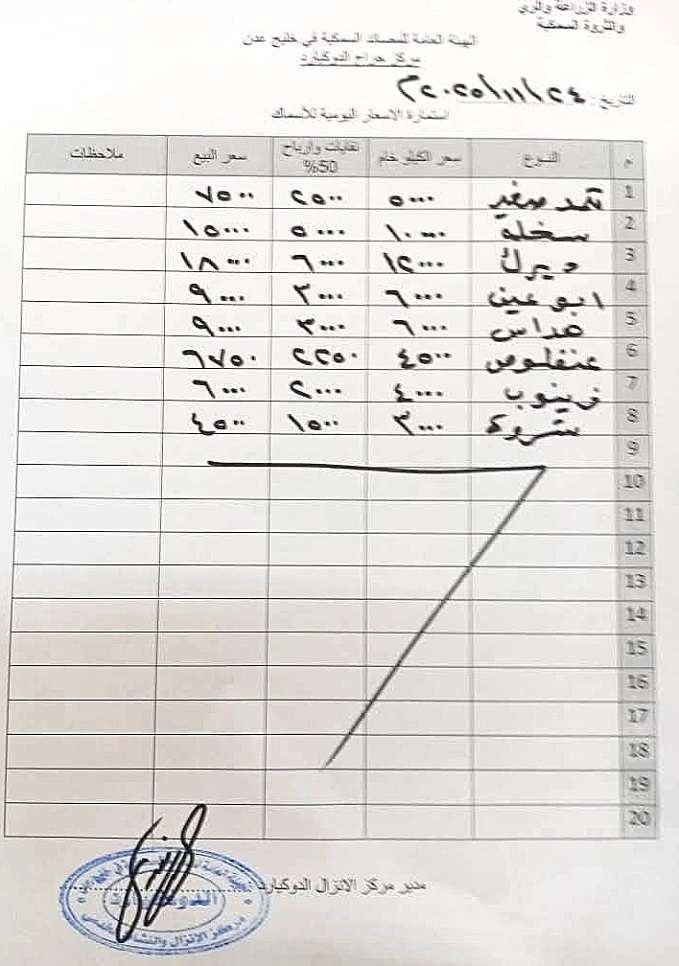 وزارة الزراعة والري
والثروة السمكية
الهيئة العامة للمصائد السمكية في خليج عدن
مركز حراج الدوكيارد
التاريخ: ٢٠٢٥/١١/٢٤م
استمارة الاسعار اليومية للأسماك
م النوع سعر الكيلو خام نفايات وارباح 50% سعر البيع ملاحظات
1 ثمد صغير ٥٠٠٠ ٢٥٠٠ ٧٥٠٠
2 سخلة ١٠٠٠٠ ٥٠٠٠ ١٥٠٠٠
3 ديرك ١٢٠٠٠ ٦٠٠٠ ١٨٠٠٠
4 ابو عين ٦٠٠٠ ٣٠٠٠ ٩٠٠٠
5 هداس ٦٠٠٠ ٣٠٠٠ ٩٠٠٠
6 عنفلوص ٤٥٠٠ ٢٢٥٠ ٦٧٥٠
7 زينوب ٤٠٠٠ ٢٠٠٠ ٦٠٠٠
8 شروة ٣٠٠٠ ١٥٠٠ ٤٥٠٠
9
10
11
12
13
14
15
16
17
18
19
20
مدير مركز الانزال الدوكيارد
مركز الانزال